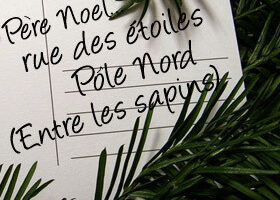 Père Noel
rue des étoiles
Pôle Nord
(Entre les sapins)